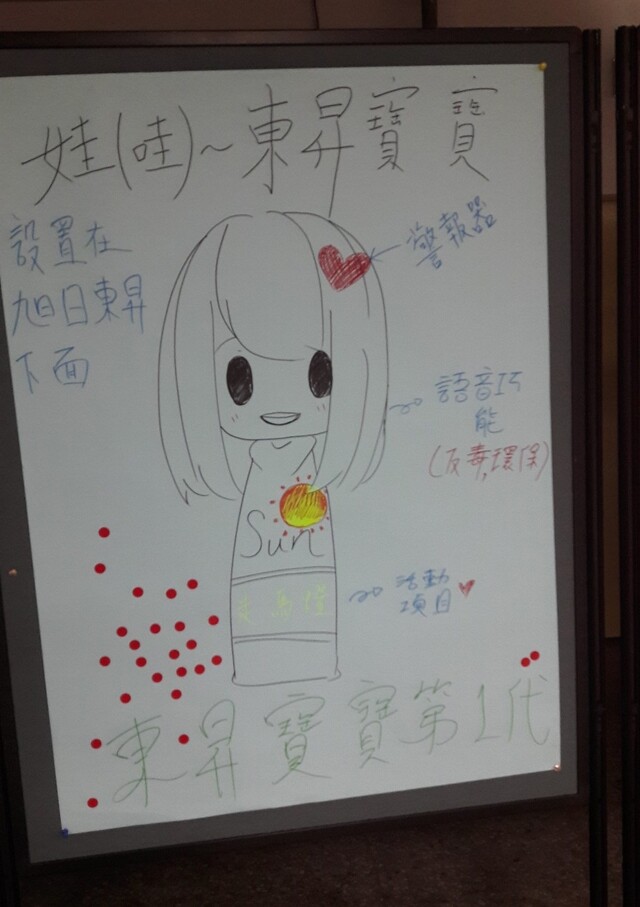 娃(哇)~東昇寶寶
設置在
旭日東昇
下面
警報器
語音功
能
(反毒,環保)
Sun
走馬燈
活動
項目
東昇寶寶第1代